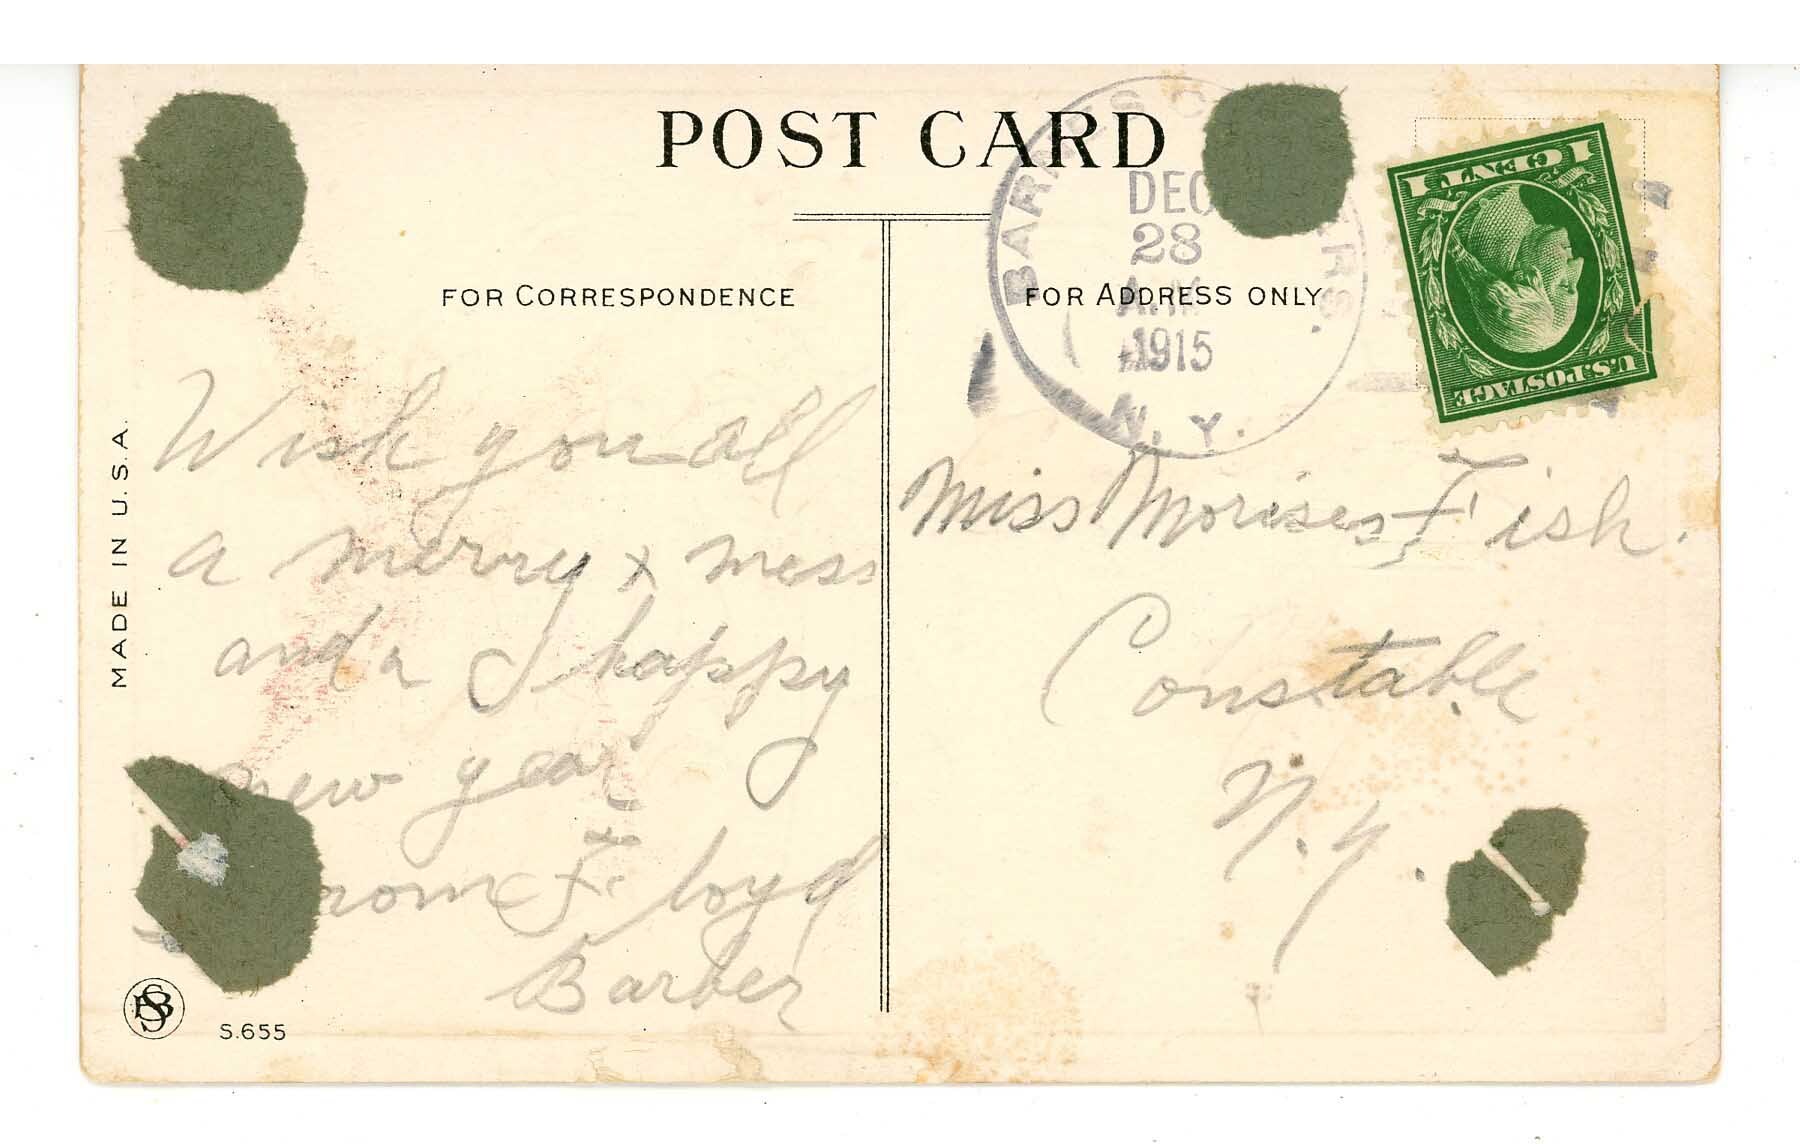 POST CARD
BARNES C RS.
DEC
28
A.M.
1915
N. Y.
1 CENT 1
U.S. POSTAGE
FOR CORRESPONDENCE
FOR ADDRESS ONLY
Wish you all
a merry x mess
and a happy
new year
rom Floyd
Barber
Miss Morises Fish.
Constable
N. y.
MADE IN U.S.A.
SB
S.655